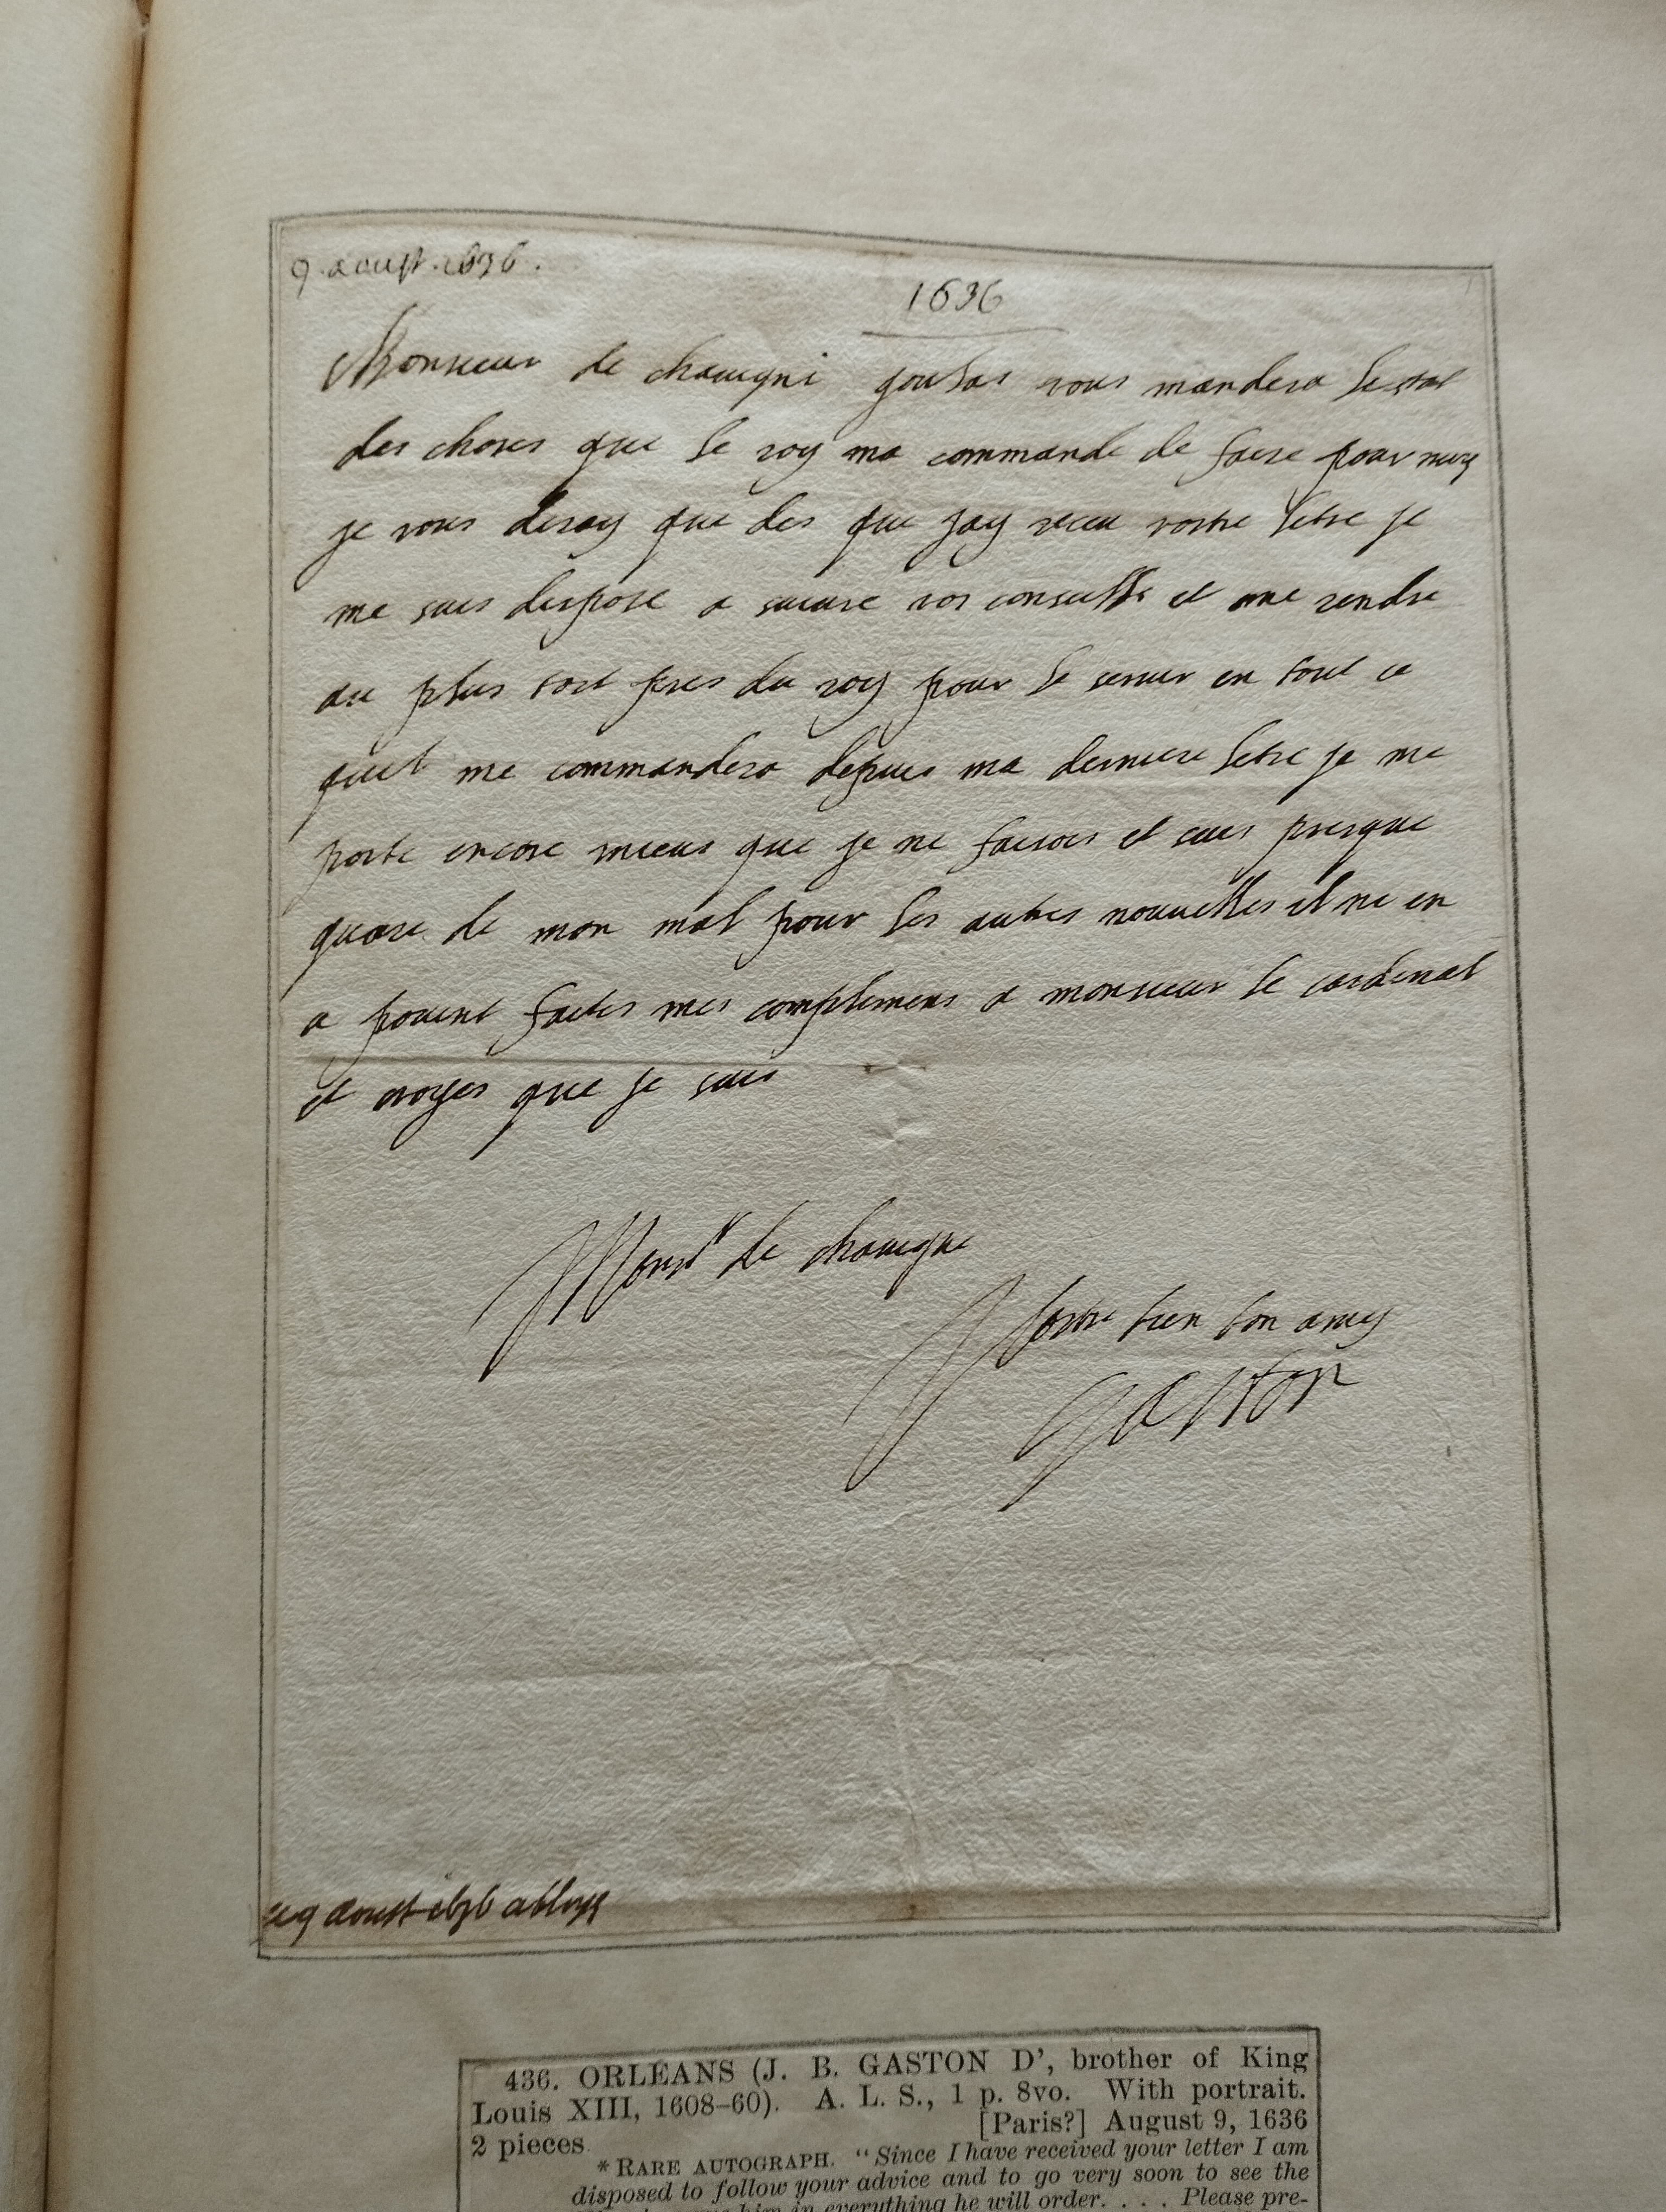 9. aoust. 1636.
1636
Monsieur de chauigni goulas vous mandera lestat
des choses que le roy ma commande de faire pour moy
je vous diray que des que jay receu vostre letre je
me suis dispose a suiure vos conseills et me rendre
au plus tost pres du roy pour le seruir en tout ce
quil me commandera depuis ma derniere letre je me
porte encore mieus que je ne faisois et suis presque
quari de mon mal pour les autres nouuelles il ne en
a pouint faites mes complimens a monsieur le cardinal
et croyes que je suis
Monsr de chauigni
Vostre bien bon amy
gaston
9 aoust 1636 a bloys
436. ORLEANS (J. B. GASTON D', brother of King
Louis XIII, 1608–60). A. L. S., 1 p. 8vo. With portrait.
[Paris?] August 9, 1636
2 pieces
*RARE AUTOGRAPH. "Since I have received your letter I am
disposed to follow your advice and to go very soon to see the
him in everything he will order. . . . Please pre-